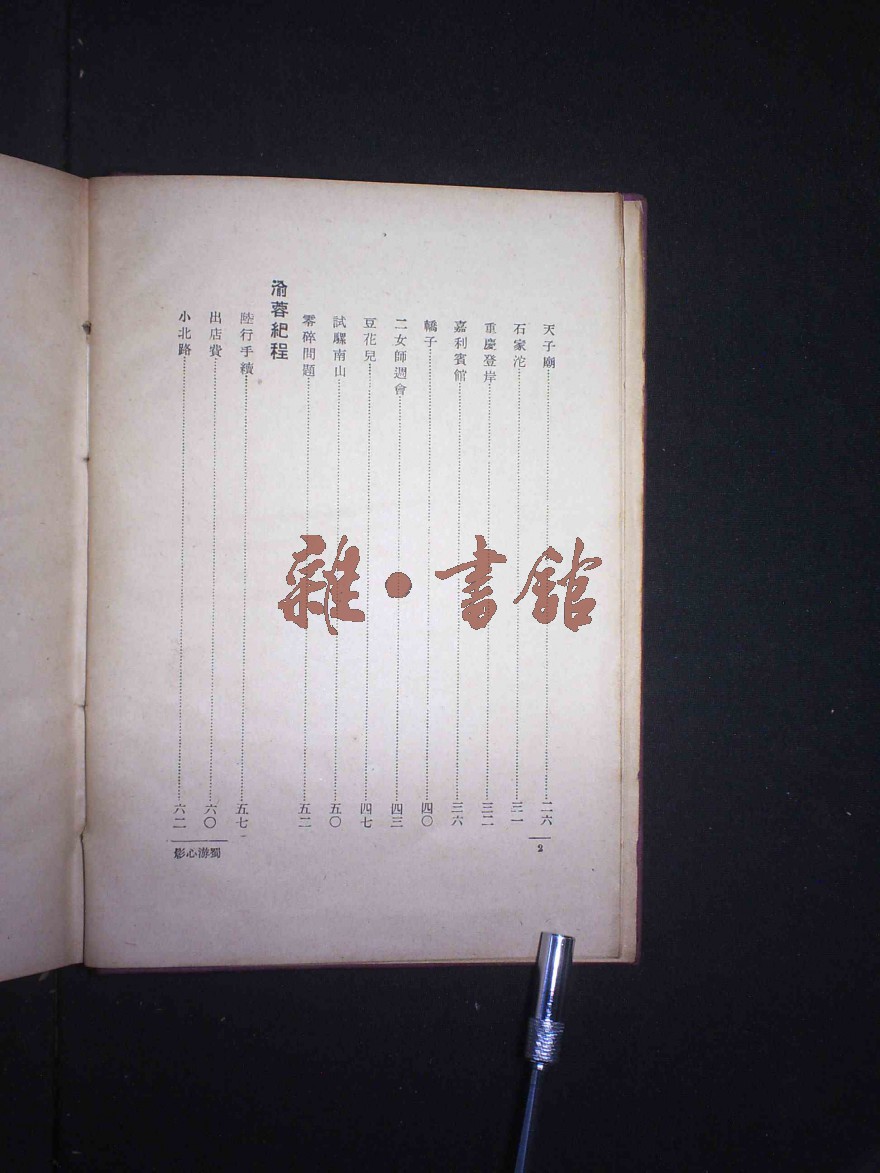 天子廟……二六
石家沱……三一
重慶登岸……三二
嘉利賓館……三六
轎子……四〇
二女師週會……四三
豆花兒……四七
試騾南山……五〇
零碎問題……五二
渝蓉紀程
陸行手續……五七
出店費……六〇
小北路……六二
2
蜀游心影
雜·書館